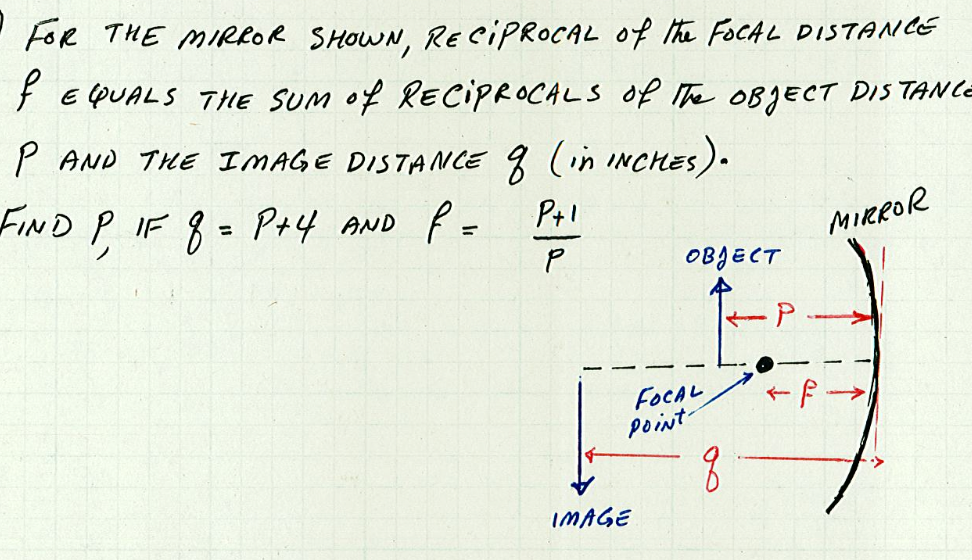 ) FOR THE MIRROR SHOWN, RECIPROCAL of the FOCAL DISTANCE
f EQUALS THE SUM of RECIPROCALS of the OBJECT DISTANCE
P AND THE IMAGE DISTANCE q (in INCHES).
FIND P, IF q = P+4 AND f = P+1
P
MIRROR
OBJECT
P
FOCAL
POINT
f
q
IMAGE